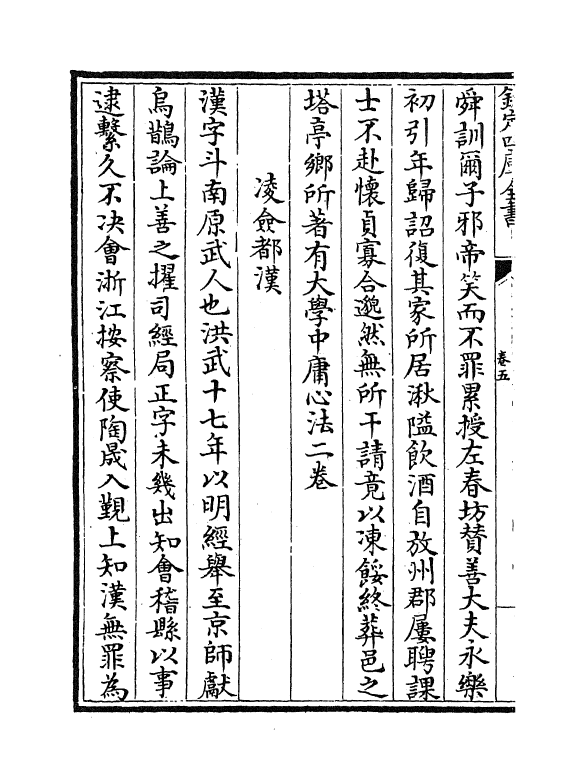 欽定四庫全書
卷五
舜訓爾子邪帝笑而不罪累授左春坊賛善大夫永樂
初引年歸詔復其家所居湫隘飲酒自放州郡屢聘課
士不赴懷貞寡合邈然無所干請竟以凍餒終葬邑之
塔亭鄉所著有大學中庸心法二卷
凌僉都漢
漢字斗南原武人也洪武十七年以明經舉至京師獻
烏鵲論上善之擢司經局正字未幾出知會稽縣以事
逮繫久不決會浙江按察使陶晟入覲上知漢無罪為